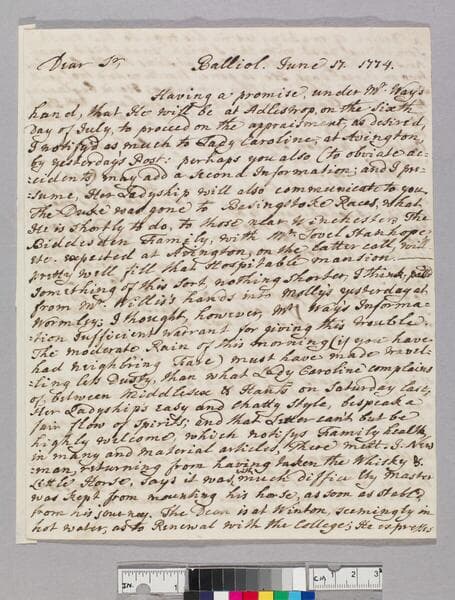 Dear Sr,
Balliol. June 17. 1774.
Having a promise, under Mr. Way's
hand, that He will be at Adlestrop, on the Sixth
day of July, to proceed on the appraisment, as desired,
I notifyd as much to Lady Caroline, at Avington,
by yesterdays Post: perhaps you also (to obviate ac-
-cidents) may add a Second Information; and I pre-
-sume, Her Ladyship will also communicate to you
The Duke was gone to Basingstoke Races, what
He is shortly to do, to those near Winchester; The
Biddesden Family, with Mr. Lovel Stanhope,
etc. expected at Avington, on the latter call, will
pretty well fill that Hospitable mansion.
Something of this sort, nothing Shorter, I think, past
from Mr. Willis's hands into Molly's yesterday at
Wormley; I thought, however, Mr. Way's Informa-
-tion Sufficient warrant for giving this trouble.
The moderate Rain of this morning (if you have
had neighbring Fare) must have made travel-
-ling less Dusty, than what Lady Caroline complains
of, between Middlesex & Hants on Saturday last,
Her Ladyships easy and chatty Style, bespeak a
fair flow of Spirits; and that Letter can't but be
highly welcome, which notifys Family health,
in many and material articles,
-man, returning from having taken the Whisky &
Little Horse, says it was much difficulty Master
was kept from mounting his horse, as soon as Stabled
from his journey. The Dean is at Winton, seemingly in
hot water, as to Renewal with the College; He expresses
In.
1
2
CM
1
2
3